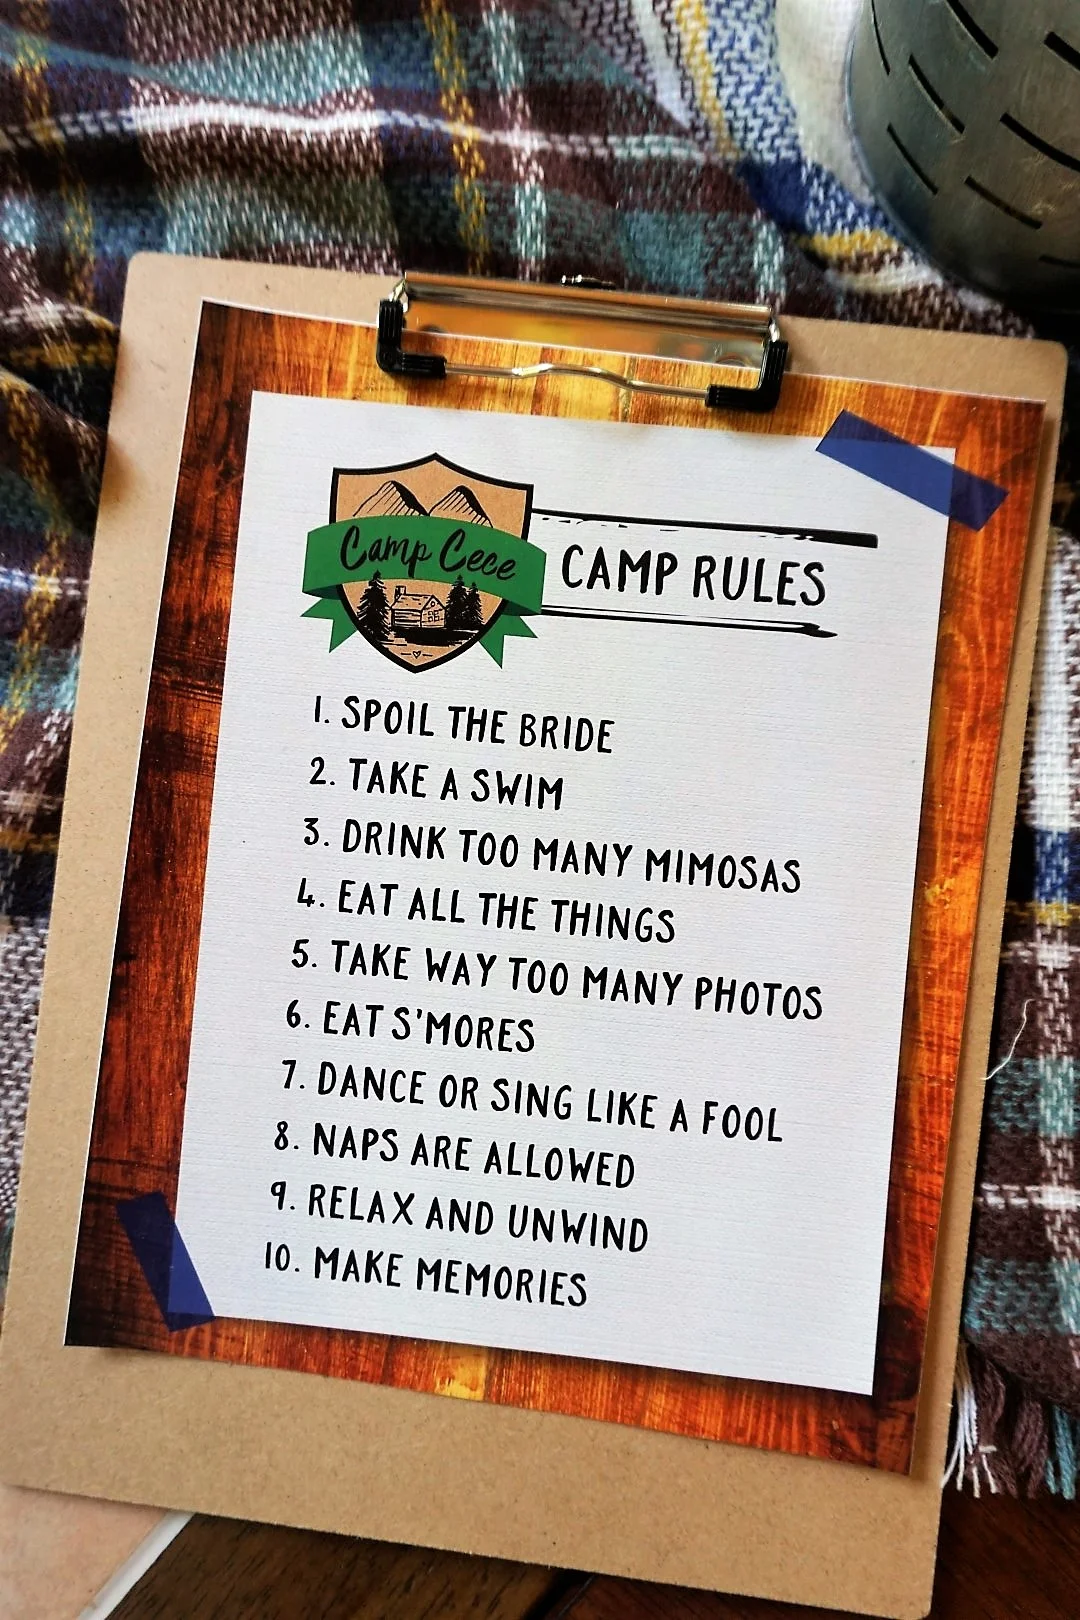 Camp Cece
CAMP RULES
1. SPOIL THE BRIDE
2. TAKE A SWIM
3. DRINK TOO MANY MIMOSAS
4. EAT ALL THE THINGS
5. TAKE WAY TOO MANY PHOTOS
6. EAT S'MORES
7. DANCE OR SING LIKE A FOOL
8. NAPS ARE ALLOWED
9. RELAX AND UNWIND
10. MAKE MEMORIES